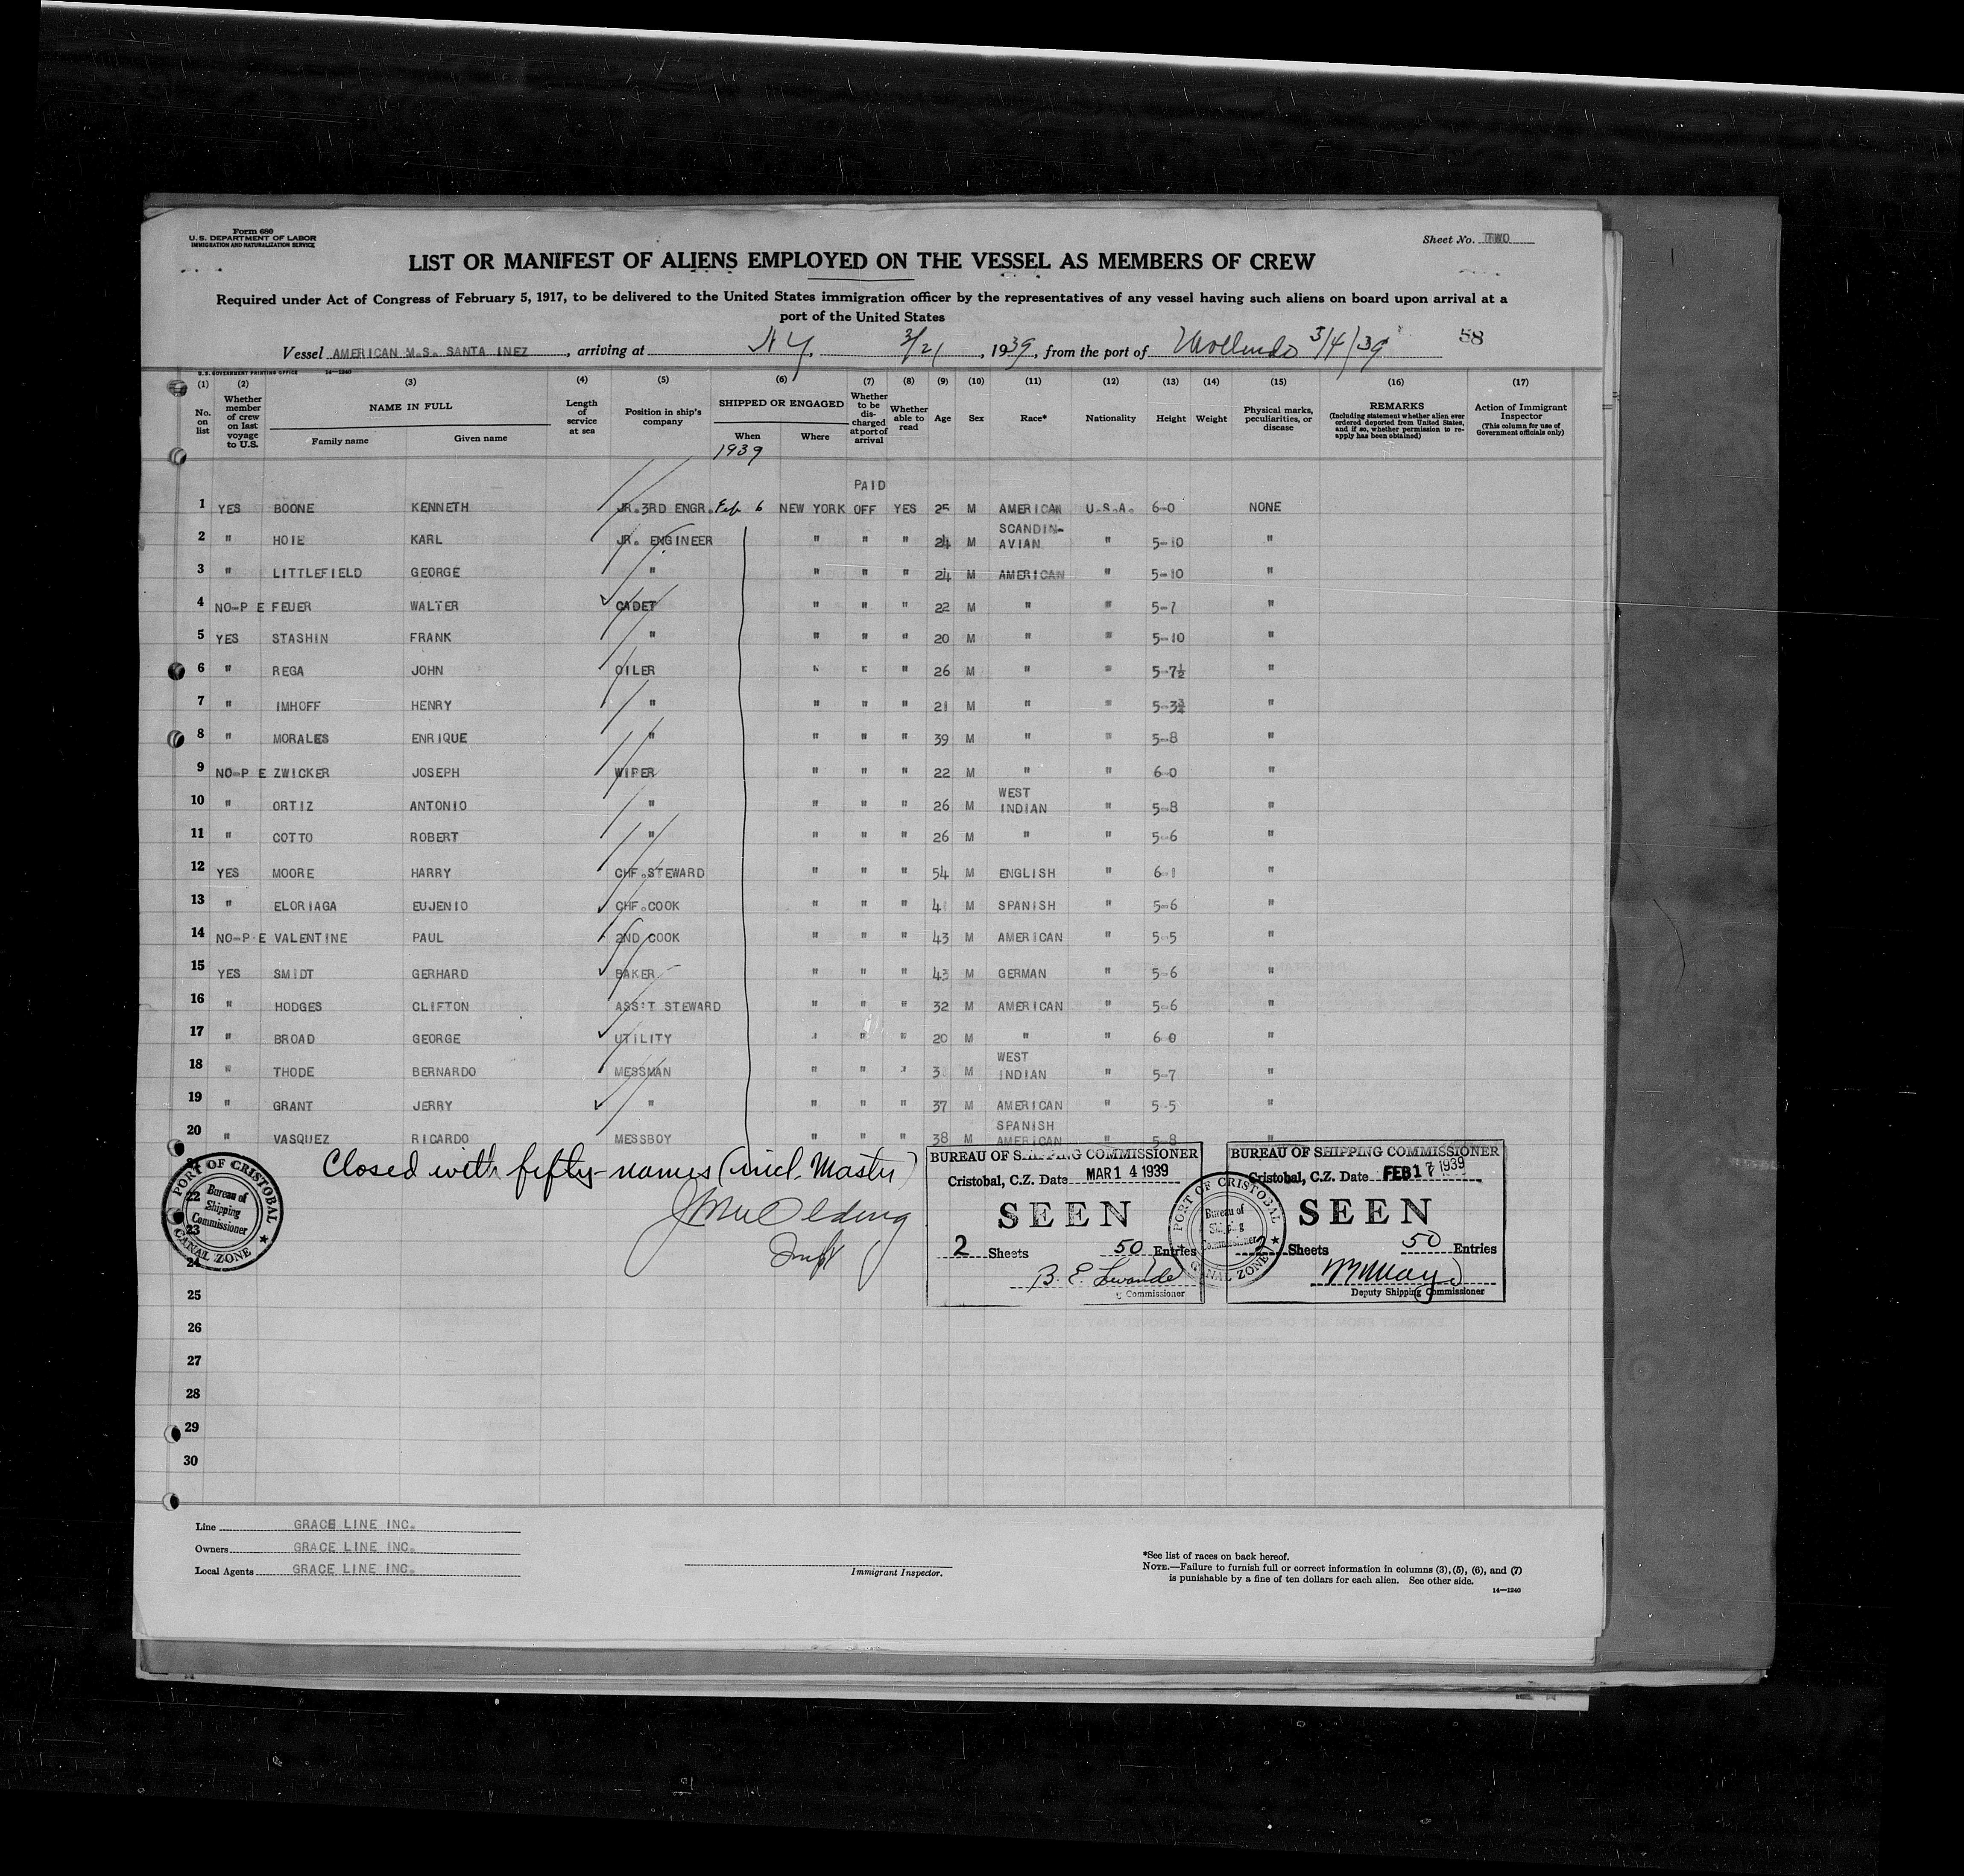 Form 680
U.S. DEPARTMENT OF LABOR
IMMIGRATION AND NATURALIZATION SERVICE
Sheet No. TWO
LIST OR MANIFEST OF ALIENS EMPLOYED ON THE VESSEL AS MEMBERS OF CREW
Required under Act of Congress of February 5, 1917, to be delivered to the United States immigration officer by the representatives of any vessel having such aliens on board upon arrival at a
port of the United States
Vessel AMERICAN M.S. SANTA INEZ, arriving at N Y, 3/21, 1939, from the port of Mollendo 3/4/39 58
U.S. GOVERNMENT PRINTING OFFICE 14—1240
(1) (2) (3) (4) (5) (6) (7) (8) (9) (10) (11) (12) (13) (14) (15) (16) (17)
No. on list
Whether member of crew on last voyage to U.S.
NAME IN FULL
Family name Given name
Length of service at sea
Position in ship's company
SHIPPED OR ENGAGED
When Where
1939
Whether to be discharged at port of arrival
Whether able to read
Age Sex Race* Nationality Height Weight
Physical marks, peculiarities, or disease
REMARKS
(Including statement whether alien ever ordered deported from United States, and if so, whether permission to reapply has been obtained)
Action of Immigrant Inspector
(This column for use of Government officials only)
PAID
1 YES BOONE KENNETH JR.3RD ENGR. Feb 6 NEW YORK OFF YES 25 M AMERICAN U.S.A. 6-0 NONE
2 " HOIE KARL JR. ENGINEER " " " 24 M SCANDIN-AVIAN " 5-10 "
3 " LITTLEFIELD GEORGE " " " " 24 M AMERICAN " 5-10 "
4 NO-P E FEUER WALTER CADET " " " 22 M " " 5-7 "
5 YES STASHIN FRANK " " " " 20 M " " 5-10 "
6 " REGA JOHN OILER " " " 26 M " " 5-7½ "
7 " IMHOFF HENRY " " " " 21 M " " 5-3¾ "
8 " MORALES ENRIQUE " " " " 39 M " " 5-8 "
9 NO-P E ZWICKER JOSEPH WIPER " " " 22 M " " 6-0 "
10 " ORTIZ ANTONIO " " " " 26 M WEST INDIAN " 5-8 "
11 " COTTO ROBERT " " " " 26 M " " 5-6 "
12 YES MOORE HARRY CHF.STEWARD " " " 54 M ENGLISH " 6-1 "
13 " ELORIAGA EUJENIO CHF.COOK " " " M SPANISH " 5-6 "
14 NO-P E VALENTINE PAUL 2ND COOK " " " 43 M AMERICAN " 5-5 "
15 YES SMIDT GERHARD BAKER " " " 43 M GERMAN " 5-6 "
16 " HODGES CLIFTON ASS'T STEWARD " " " 32 M AMERICAN " 5-6 "
17 " BROAD GEORGE UTILITY " " " 20 M " " 6-0 "
18 " THODE BERNARDO MESSMAN " " " M WEST INDIAN " 5-7 "
19 " GRANT JERRY " " " " 37 M AMERICAN " 5-5 "
20 " VASQUEZ RICARDO MESSBOY " " " 38 M SPANISH AMERICAN " 5-8 "
Closed with fifty names (incl. Master)
PORT OF CRISTOBAL
Bureau of Shipping Commissioner
CANAL ZONE
BUREAU OF SHIPPING COMMISSIONER
Cristobal, C.Z. Date MAR 14 1939
SEEN
2 Sheets 50 Entries
Commissioner
PORT OF CRISTOBAL
Bureau of Shipping Commissioner
CANAL ZONE
BUREAU OF SHIPPING COMMISSIONER
Cristobal, C.Z. Date FEB 17 1939
SEEN
2 Sheets 50 Entries
Deputy Shipping Commissioner
22
23
24
25
26
27
28
29
30
Line GRACE LINE INC.
Owners GRACE LINE INC.
Local Agents GRACE LINE INC.
Immigrant Inspector.
*See list of races on back hereof.
NOTE.—Failure to furnish full or correct information in columns (3), (5), (6), and (7)
is punishable by a fine of ten dollars for each alien. See other side.
14—1240